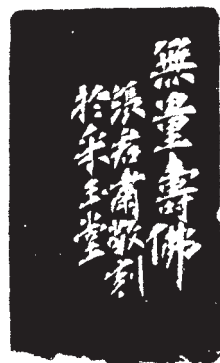 無量壽佛
張君甫敬刻
於采玉堂